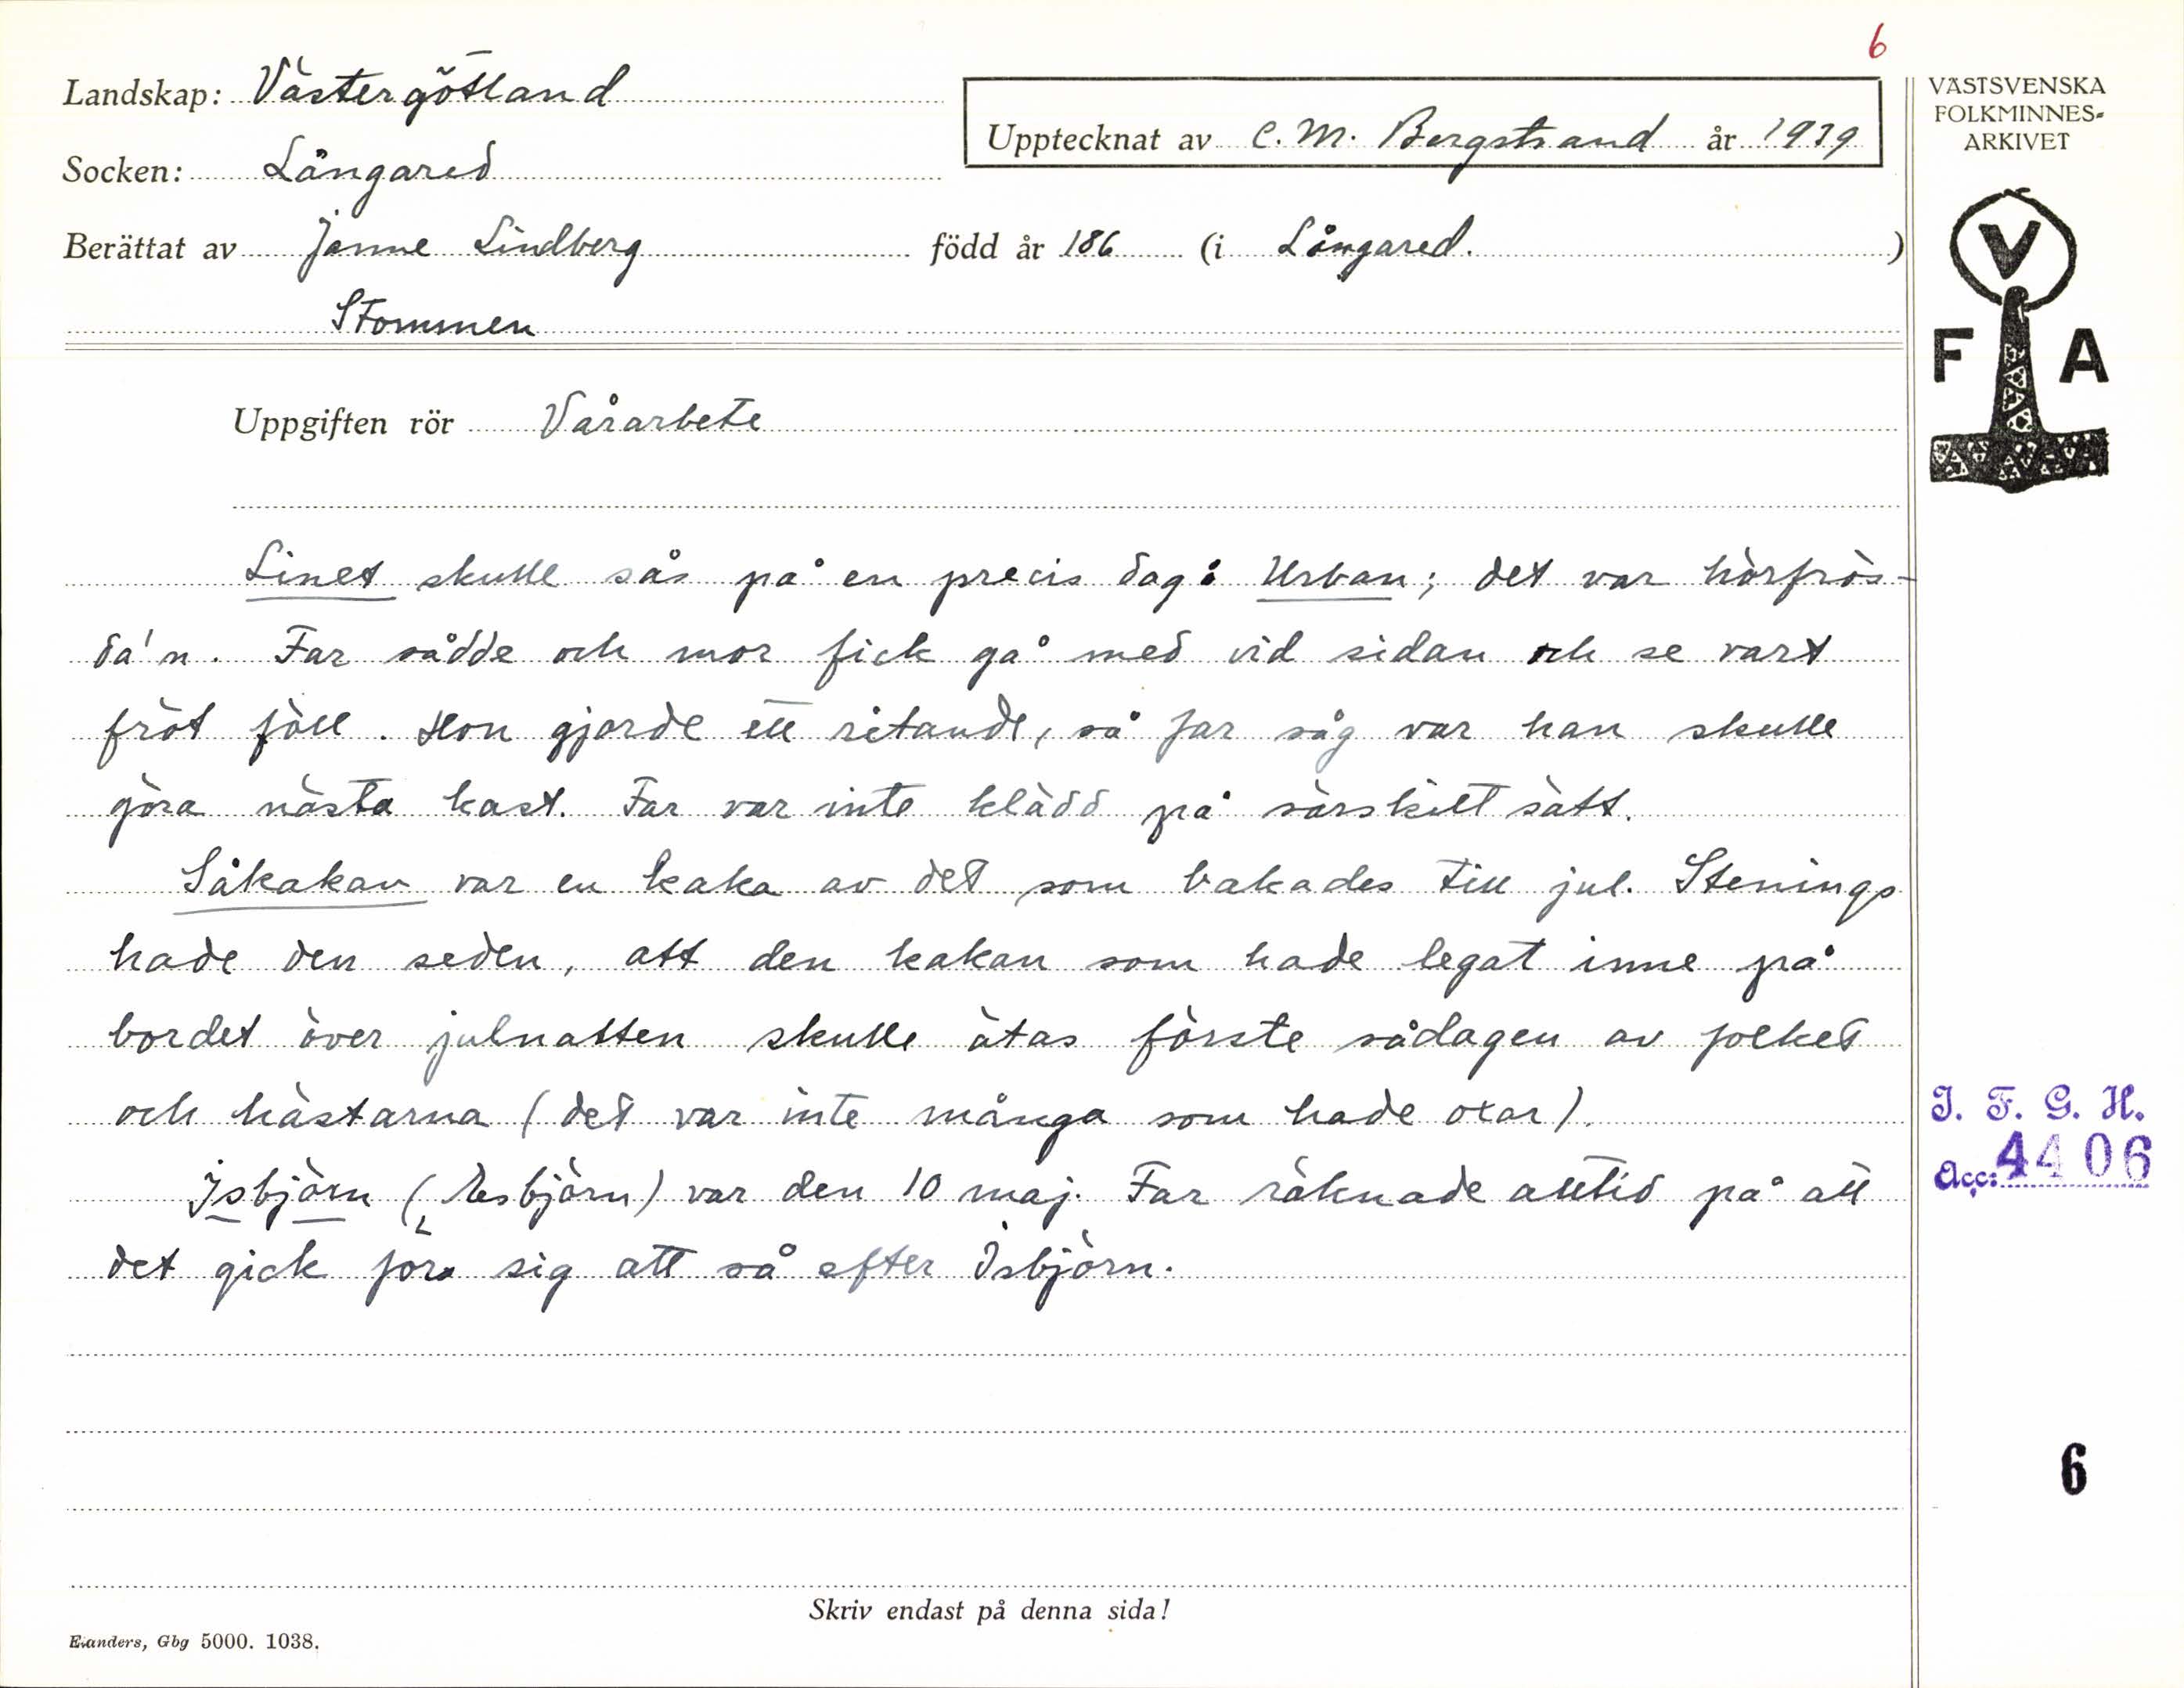 6
Landskap: Västergötland
Upptecknat av C. M. Bergstrand år 1939
Socken: Långared
Berättat av Janne Lindberg född år 186 (i Långared.)
Stommen
VÄSTSVENSKA
FOLKMINNES-
ARKIVET
V
F A
Uppgiften rör Vårarbete
Linet skulle sås på en precis dag: Urban; det var hörfrös-
da'n. Far sådde och mor fick gå med vid sidan och se vart
fröt föll. Hon gjorde ett ritande, så far såg var han skulle
göra nästa kast. Far var inte klädd på särskilt sätt.
Såkakan var en kaka av det som bakades till jul. Stenings
hade den seden, att den kakan som hade legat inne på
bordet över julnatten skulle ätas förste sådagen av folket
och hästarna (det var inte många som hade oxar).
Isbjörn (Esbjörn) var den 10 maj. Far räknade alltid på att
det gickföra sig att så efter Isbjörn.
I. F. G. H.
Acc: 4406
6
Skriv endast på denna sida!
Evanders, Gbg 5000. 1038.